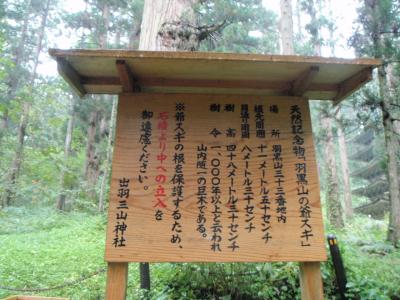 天然記念物「羽黒山の爺スギ」
場所 羽黒山三十三番地内
根先周囲 十一メートル五十センチ
目通り周囲 八メートル三十センチ
樹高 四十八メートル三十センチ
樹令 一、〇〇〇年以上と云われ
山内随一の巨木である。
※爺スギの根を保護するため、
石積より中への立入を
御遠慮ください。
出羽三山神社